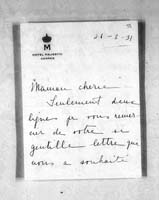 M
HOTEL MAJESTIC
CANNES
26-2-31
Maman cherie
Seulement deux
lignes je vous remer
cier de votre si
gentille lettre que
vous a souhaité